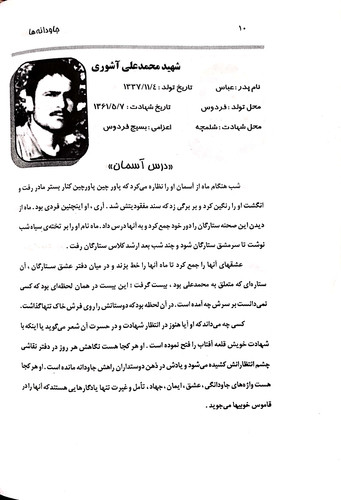 ۱۰
جاودانه‌ها
شهید محمدعلی آشوری
نام پدر : عباس
تاریخ تولد : ۱۳۳۷/۱۱/۴
محل تولد : فردوس
تاریخ شهادت : ۱۳۶۱/۵/۷
محل شهادت : شلمچه
اعزامی : بسیج فردوس
«درس آسمان»
شب هنگام، ماه از آسمان او را نظاره می‌کرد که پاورچین پاورچین کنار بستر مادر رفت و
انگشت او را رنگین کرد و بر برگی زد که سند مفقودیتش شد. آری ، او اینچنین فردی بود. ماه از
دیدن این صحنه ستارگان را دور خود جمع کرد و به آنها درس داد. ماه نام او را بر تخته‌ی سیاه شب
نوشت تا سرمشق ستارگان شود و چند شب بعد ارشد کلاس ستارگان رفت .
عشقهای آنها را جمع کرد تا ماه آنها را خط بزند و در میان دفتر عشق ستارگان ، آن
ستاره‌ای که متعلق به محمدعلی بود ، بیست گرفت : این بیست در همان لحظه‌ای بود که کسی
نمی‌دانست بر سرش چه آمده است . در آن لحظه بود که دوستانش را روی فرش خاک تنها گذاشت.
کسی چه می‌داند که او آیا هنوز در انتظار شهادت و در حسرت آن شعر می‌گوید یا اینکه با
شهادت خویش قلعه آفتاب را فتح نموده است . او هر کجا هست نگاهش هر روز در دفتر نقاشی
چشم انتظارانش کشیده می‌شود و یادش در ذهن دوستداران راهش جاودانه مانده است . او هر کجا
هست واژه‌های جاودانگی ، عشق ، ایمان ، جهاد ، تأمل و غیرت تنها یادگارهایی هستند که آنها را در
قاموس خوبیها می‌جوید .